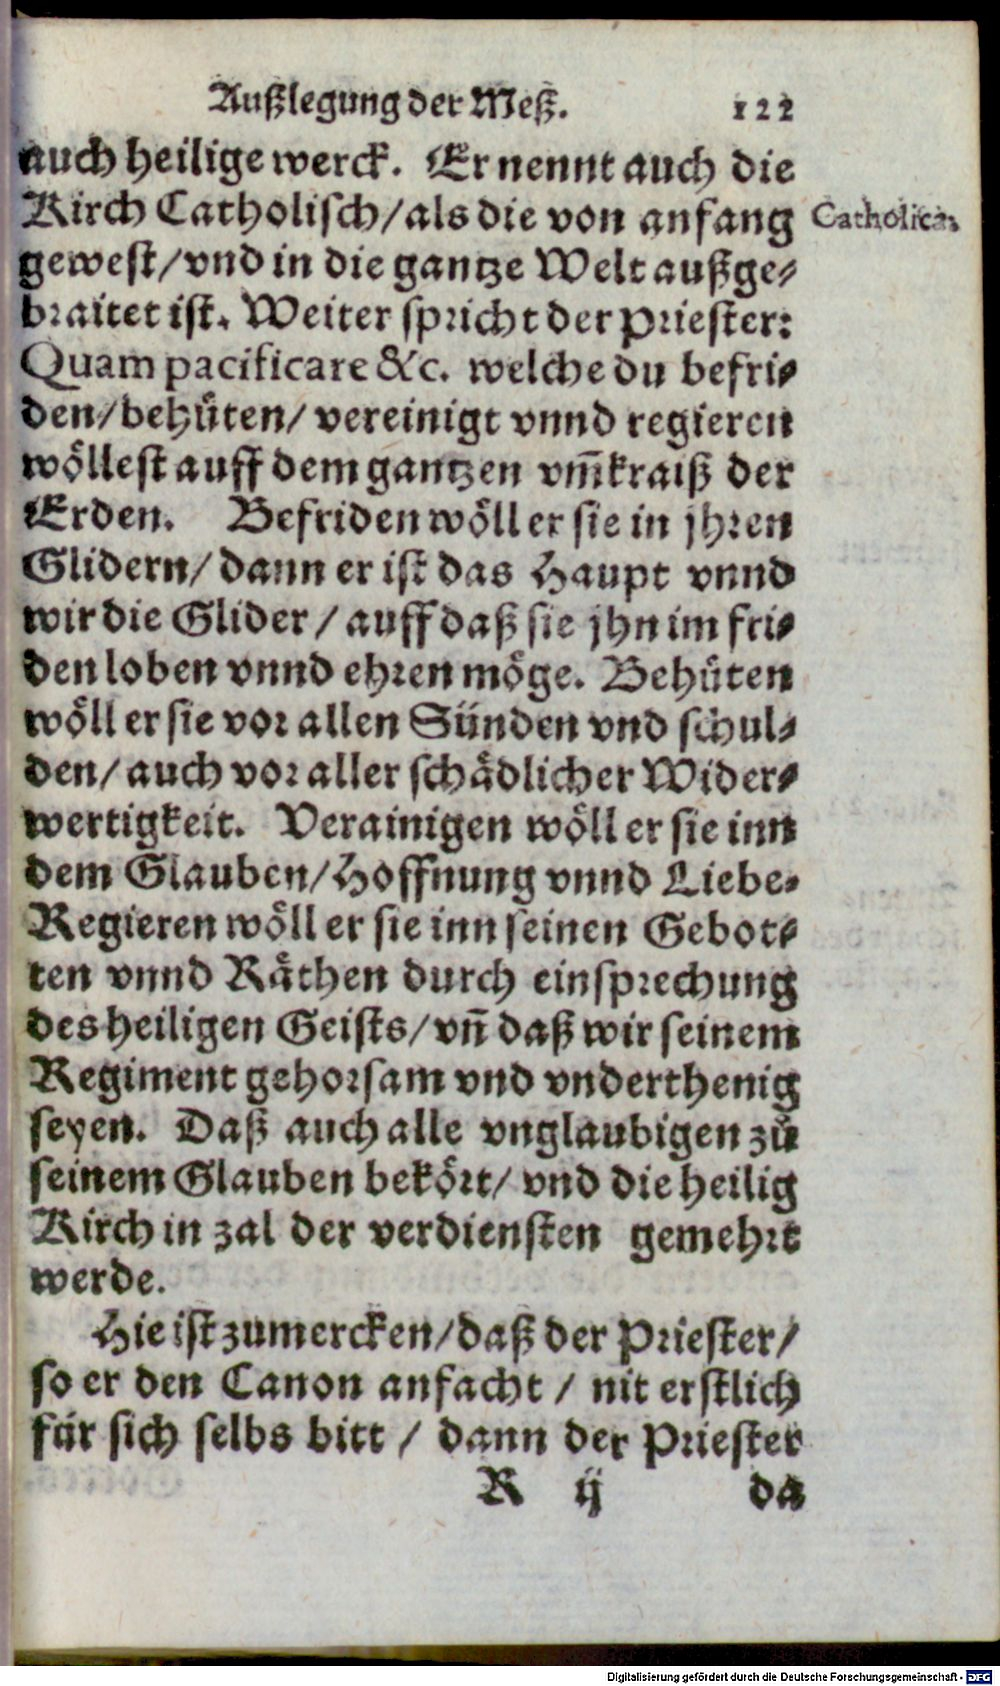 Außlegung der Meß. 122
auch heilige werck. Er nennt auch die
Kirch Catholisch/als die von anfang
Catholica.
gewest/vnd in die gantze Welt außge-
braitet ist. Weiter spricht der Priester:
Quam pacificare &c. welche du befri-
den/behüten/ vereinigt vnnd regieren
wöllest auff dem gantzen vm̃kraiß der
Erden. Befriden wöll er sie in jhren
Glidern/ dann er ist das Haupt vnnd
wir die Glider / auff daß sie jhn im fri-
den loben vnnd ehren möge. Behüten
wöll er sie vor allen Sünden vnd schul-
den/ auch vor aller schädlicher Wider-
wertigkeit. Verainigen wöll er sie inn
dem Glauben/Hoffnung vnnd Liebe.
Regieren wöll er sie inn seinen Gebot-
ten vnnd Räthen durch einsprechung
des heiligen Geists/ vñ daß wir seinem
Regiment gehorsam vnd vnderthenig
seyen. Daß auch alle vnglaubigen zů
seinem Glauben bekört/ vnd die heilig
Kirch in zal der verdiensten gemehrt
werde.
Hie ist zumercken/daß der Priester/
so er den Canon anfacht / nit erstlich
für sich selbs bitt / dann der Priester
R ij da
Digitalisierung gefördert durch die Deutsche Forschungsgemeinschaft - DFG